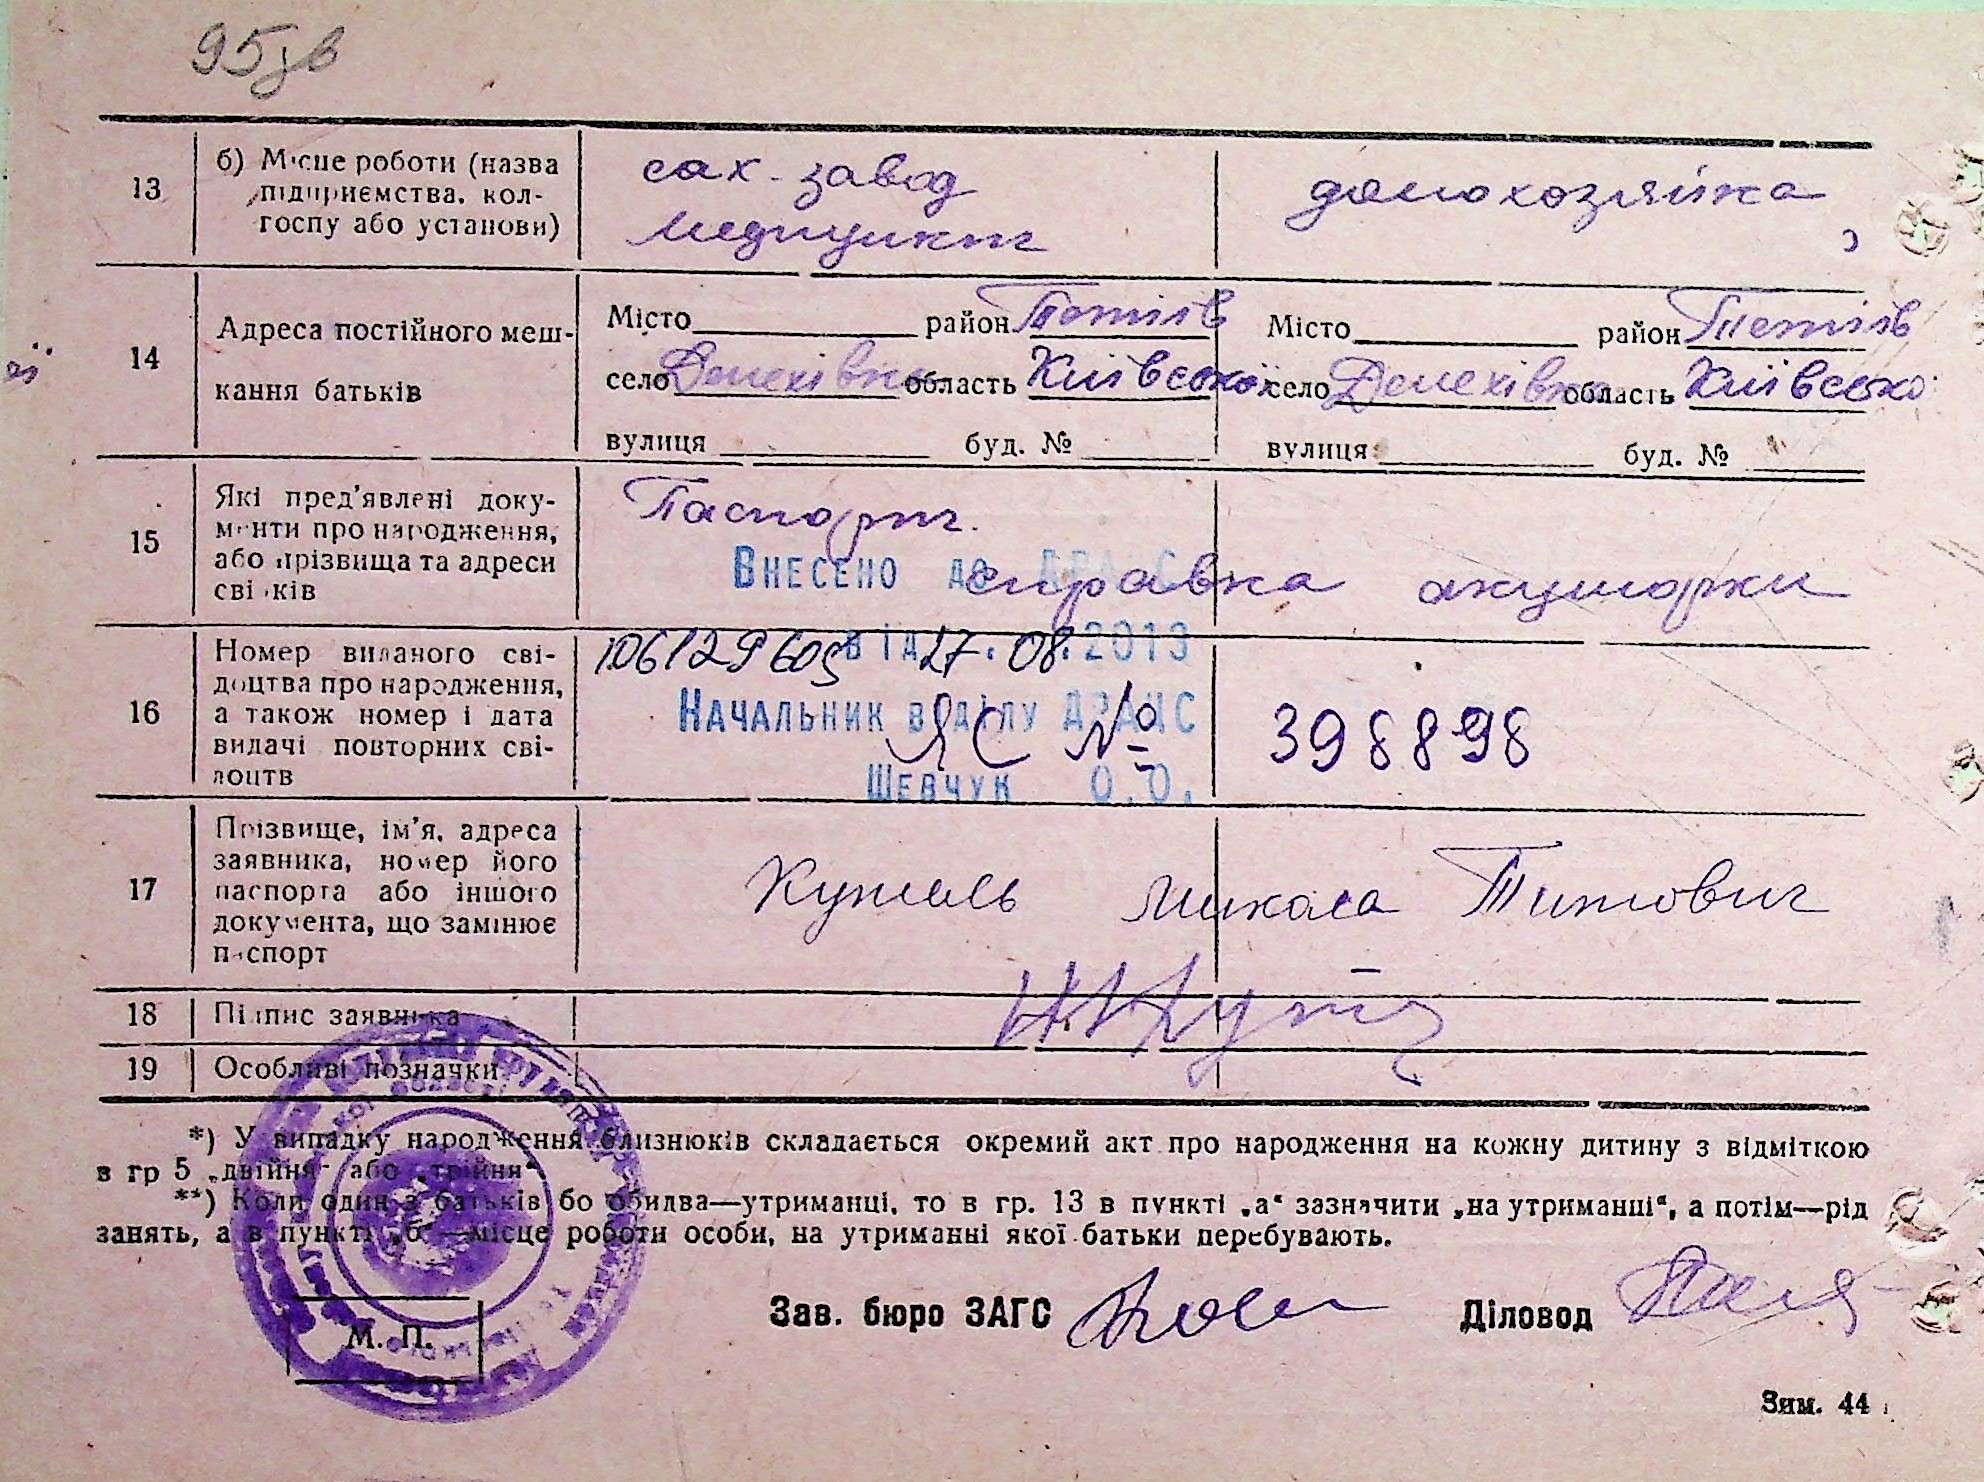 95зв
13
б) Місце роботи (назва
підприємства, кол-
госпу або установи)
сах. завод
медпункт
домохозяйка
14
Адреса постійного меш-
кання батьків
Місто район Тетіїв
село Денехівка область Київської
вулиця буд. №
Місто район Тетіїв
село Денехівка область Київсько
вулиця буд. №
15
Які пред'явлені доку-
менти про народження,
або прізвища та адреси
свідків
Паспорт.
справка акушорки
Внесено до ДРАЦС
16
Номер виданого сві-
доцтва про народження,
а також номер і дата
видачі повторних сві-
доцтв
від 27.08.2013
Начальник відділу ДРАЦС
ЯС № 398898
Шевчук О.О.
17
Прізвище, ім'я, адреса
заявника, номер його
паспорта або іншого
документа, що замінює
паспорт
Кутель Микола Титович
18
Підпис заявника
19
Особливі позначки
*) У випадку народження близнюків складається окремий акт про народження на кожну дитину з відміткою
в гр 5 „двійня" або „трійня"
**) Коли один з батьків бо обидва—утриманці, то в гр. 13 в пункті „а" зазначити „на утриманці", а потім—рід
занять, а в пункті „б"—місце роботи особи, на утриманні якої батьки перебувають.
М. П.
Зав. бюро ЗАГС
Діловод
Зим. 44